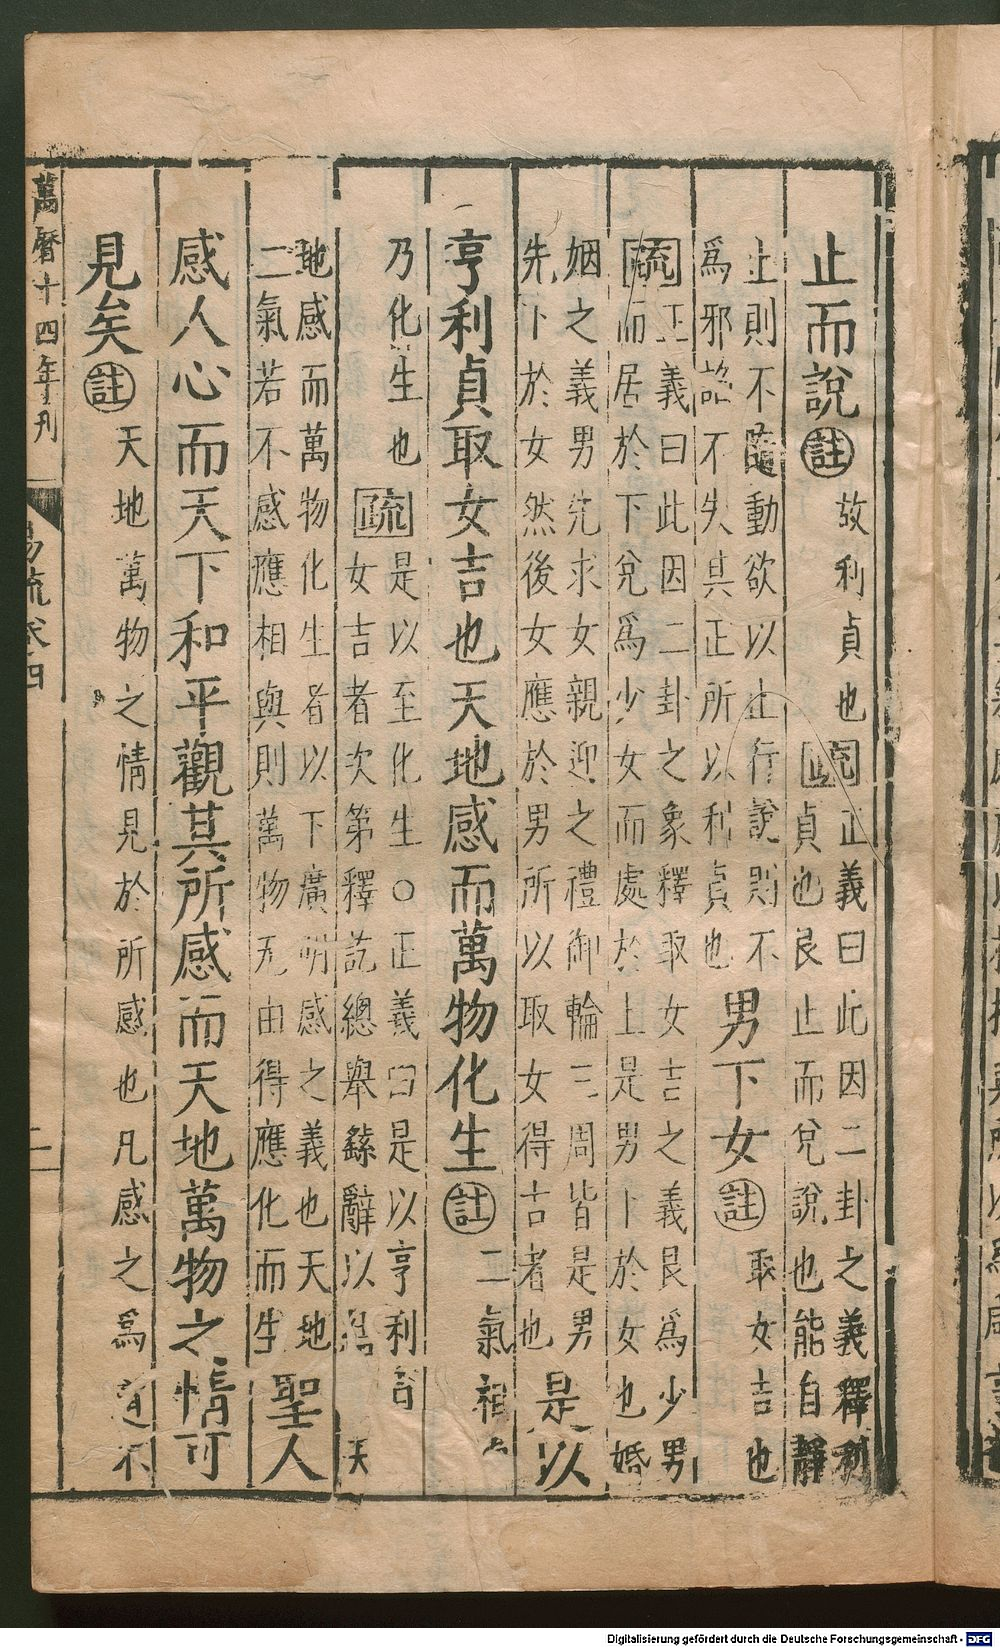 止而說註故利貞也疏正義曰此因二卦之義釋利
貞也艮止而兌說也能自靜
止則不隨動欲以止行說則不
為邪諂不失其正所以利貞也
男下女註取女吉也
疏正義曰此因二卦之象釋取女吉之義艮為少男
而居於下兌為少女而處於上是男下於女也婚
姻之義男先求女親迎之禮御輪三周皆是男
先下於女然後女應於男所以取女得吉者也
是以
亨利貞取女吉也天地感而萬物化生註二氣相與
乃化生也疏是以至化生○正義曰是以亨利貞
女吉者次第釋訖總舉繇辭以結
天
地感而萬物化生者以下廣明感之義也天地
二氣若不感應相與則萬物无由得應化而生
聖人
感人心而天下和平觀其所感而天地萬物之情可
見矣註天地萬物之情見於所感也凡感之為道不
萬曆十四年刊
易疏卷四
二
Digitalisierung gefördert durch die Deutsche Forschungsgemeinschaft - DFG